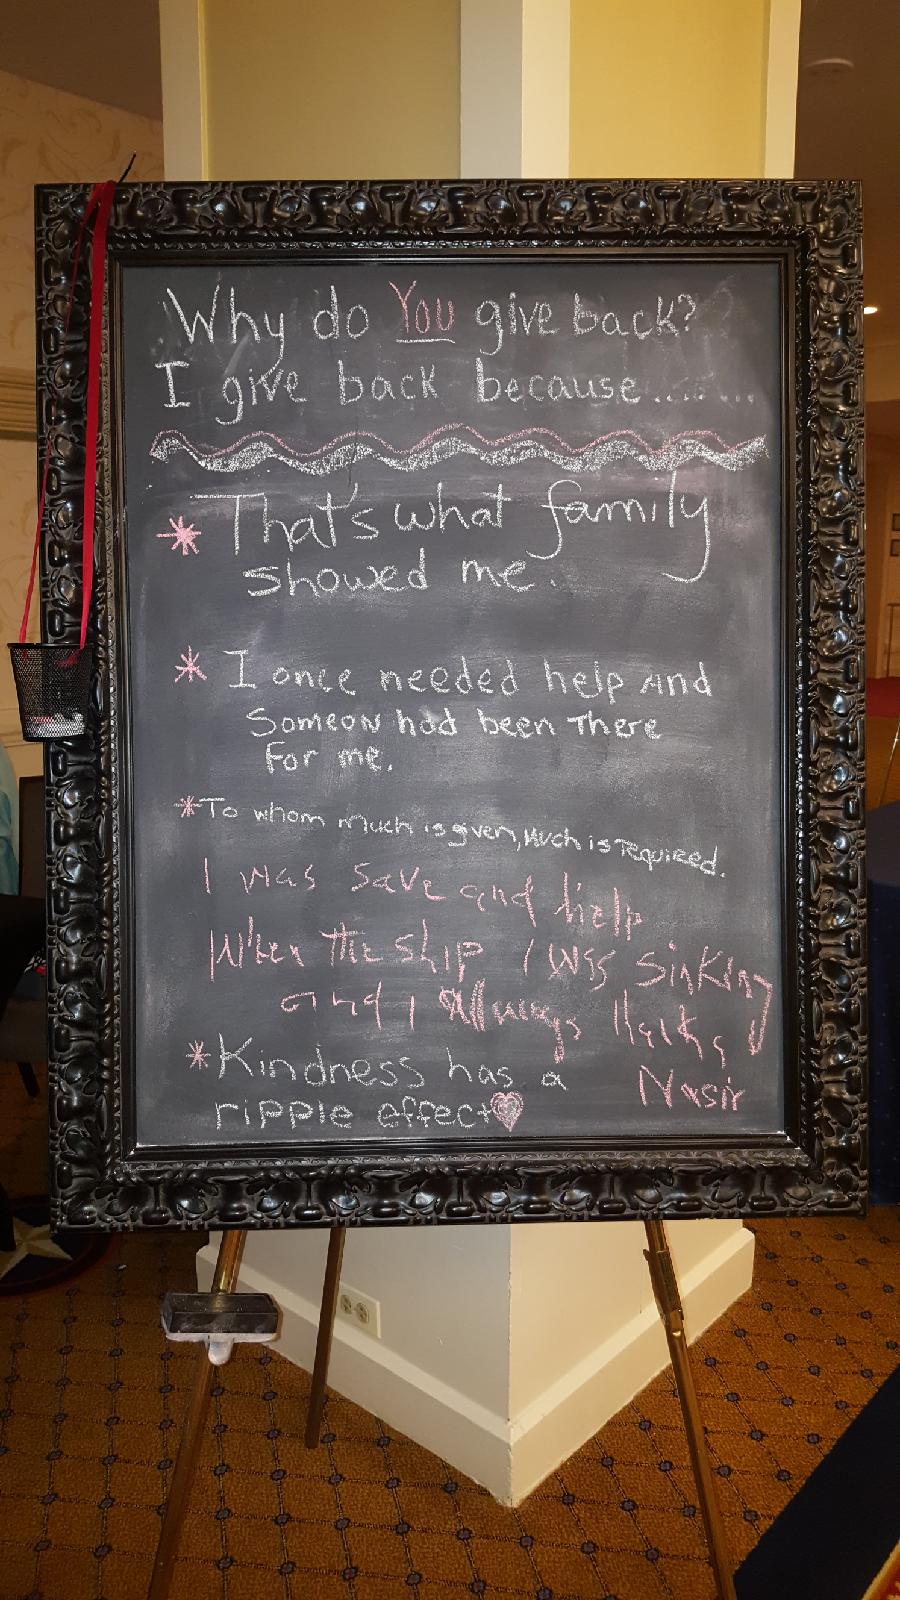 Why do You give back?
I give back because.......
* That's what family
showed me.
* I once needed help And
Someon had been There
For me.
* To whom much is given, Much is required.
I was save and help
When the ship I was sinking
and I Allways
* Kindness has a
Nasir
ripple effect